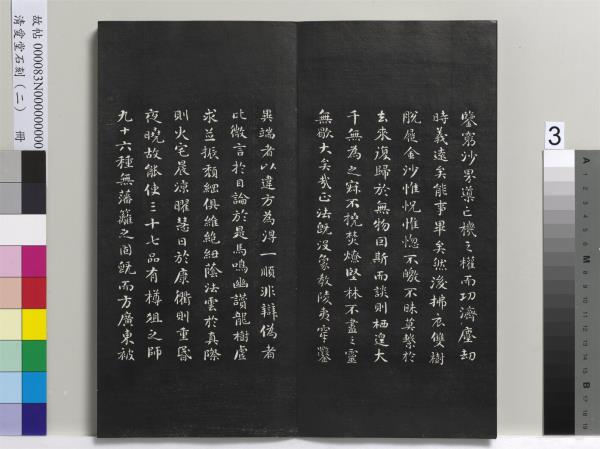 故帖 000083N000000000
清愛堂石刻(二) 冊
3
A
鑒窮沙界導亡機之權而功濟塵劫
時義遠矣能事畢矣然後拂衣雙樹
脫屣金沙惟怳惟惚不曒不昧莫繫於
去來復歸於無物因斯而談則栖遑大
千無為之寐不撓焚燎堅林不盡之靈
無歇大矣哉正法既沒象教陵夷穿鑿
異端者以違方為得一順非辯偽者
比微言於目論於是馬鳴幽讚龍樹虛
求並振頹綱俱維絶紐蔭法雲於真際
則火宅晨涼曜慧日於康衢則重昏
夜曉故能使三十七品有樽俎之師
九十六種無藩籬之固既而方廣東被